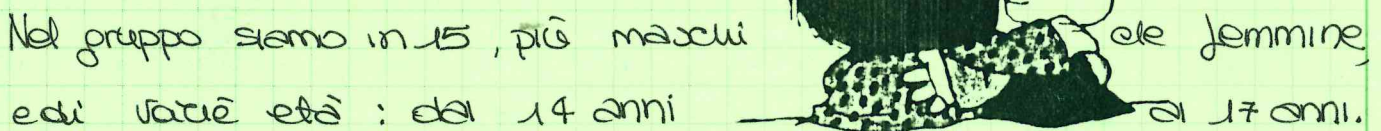 Nel gruppo siamo in 15, più maschi che femmine,
e di varie età: dai 14 anni ai 17 anni.